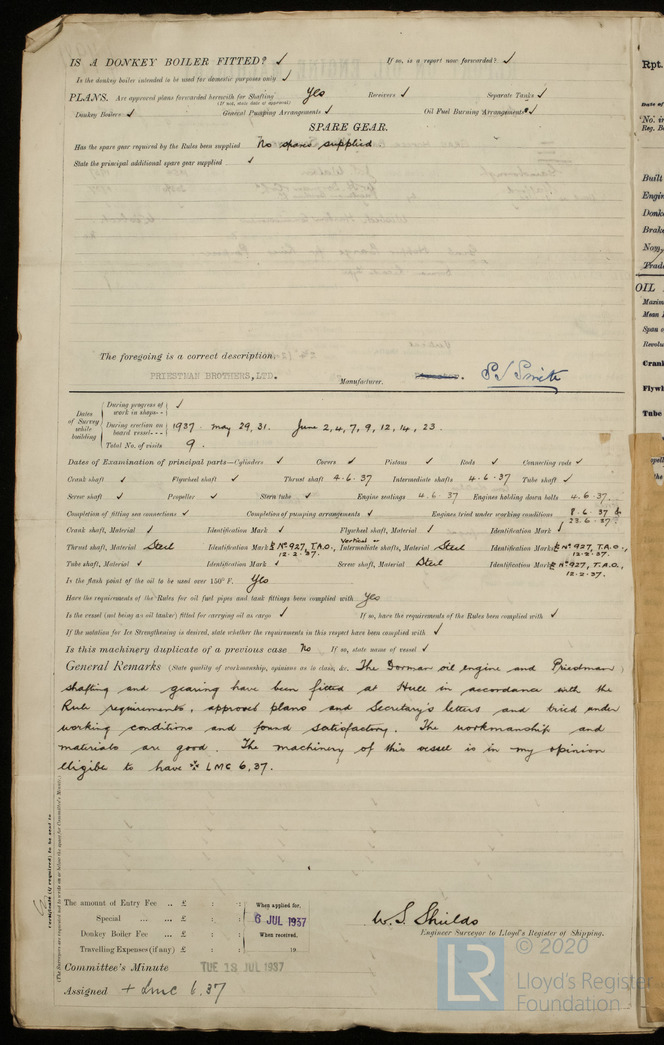 IS A DONKEY BOILER FITTED? ✓ If so, is a report now forwarded? ✓
Is the donkey boiler intended to be used for domestic purposes only ✓
PLANS. Are approved plans forwarded herewith for Shafting Yes Receivers ✓ Separate Tanks ✓
(If not, state date of approval)
Donkey Boilers ✓ General Pumping Arrangements ✓ Oil Fuel Burning Arrangements ✓
SPARE GEAR.
Has the spare gear required by the Rules been supplied No spares supplied
State the principal additional spare gear supplied ✓
The foregoing is a correct description,
PRIESTMAN BROTHERS, LTD. Manufacturer. S J Smith
Dates of Survey while building
During progress of work in shops -- ✓
During erection on board vessel --- 1937. May 29, 31. June 2, 4, 7, 9, 12, 14, 23.
Total No. of visits 9.
Dates of Examination of principal parts—Cylinders ✓ Covers ✓ Pistons ✓ Rods ✓ Connecting rods ✓
Crank shaft ✓ Flywheel shaft ✓ Thrust shaft 4.6.37 Intermediate shafts 4.6.37 Tube shaft ✓
Screw shaft ✓ Propeller ✓ Stern tube ✓ Engine seatings 4.6.37 Engines holding down bolts 4.6.37
Completion of fitting sea connections ✓ Completion of pumping arrangements ✓ Engines tried under working conditions 8.6.37 & 23.6.37
Crank shaft, Material ✓ Identification Mark ✓ Flywheel shaft, Material ✓ Identification Mark ✓
Thrust shaft, Material Steel Identification Mark Nº 927, T.A.O., 12.2.37. Vertical or Intermediate shafts, Material Steel Identification Marks Nº 927, T.A.O., 12.2.37.
Tube shaft, Material ✓ Identification Mark ✓ Screw shaft, Material Steel Identification Mark Nº 927, T.A.O., 12.2.37.
Is the flash point of the oil to be used over 150° F. Yes
Have the requirements of the Rules for oil fuel pipes and tank fittings been complied with Yes
Is the vessel (not being an oil tanker) fitted for carrying oil as cargo ✓ If so, have the requirements of the Rules been complied with ✓
If the notation for Ice Strengthening is desired, state whether the requirements in this respect have been complied with ✓
Is this machinery duplicate of a previous case No If so, state name of vessel ✓
General Remarks (State quality of workmanship, opinions as to class, &c. The Dorman oil engine and Priestman)
shafting and gearing have been fitted at Hull in accordance with the
Rule requirements, approved plans and Secretary's letters and tried under
working conditions and found satisfactory. The workmanship and
materials are good. The machinery of this vessel is in my opinion
eligible to have ✠ LMC 6,37.
Certificate (if required) to be sent to
(The Surveyors are requested not to write on or below the space for Committee's Minute.)
The amount of Entry Fee .. £ : : When applied for,
Special ... ... £ : : 6 JUL 1937
Donkey Boiler Fee ... £ : : When received,
Travelling Expenses (if any) £ : : 19
W. S. Shields
Engineer Surveyor to Lloyd's Register of Shipping.
Committee's Minute TUE 13 JUL 1937
Assigned + LMC 6.37
LR
© 2020
Lloyd's Register
Foundation
Rpt.
Date of
No. in
Reg. B
Built
Engin
Donk
Brake
Nom
Trade
OIL
Maxim
Mean
Span o
Revolu
Crank
Flywh
Tube